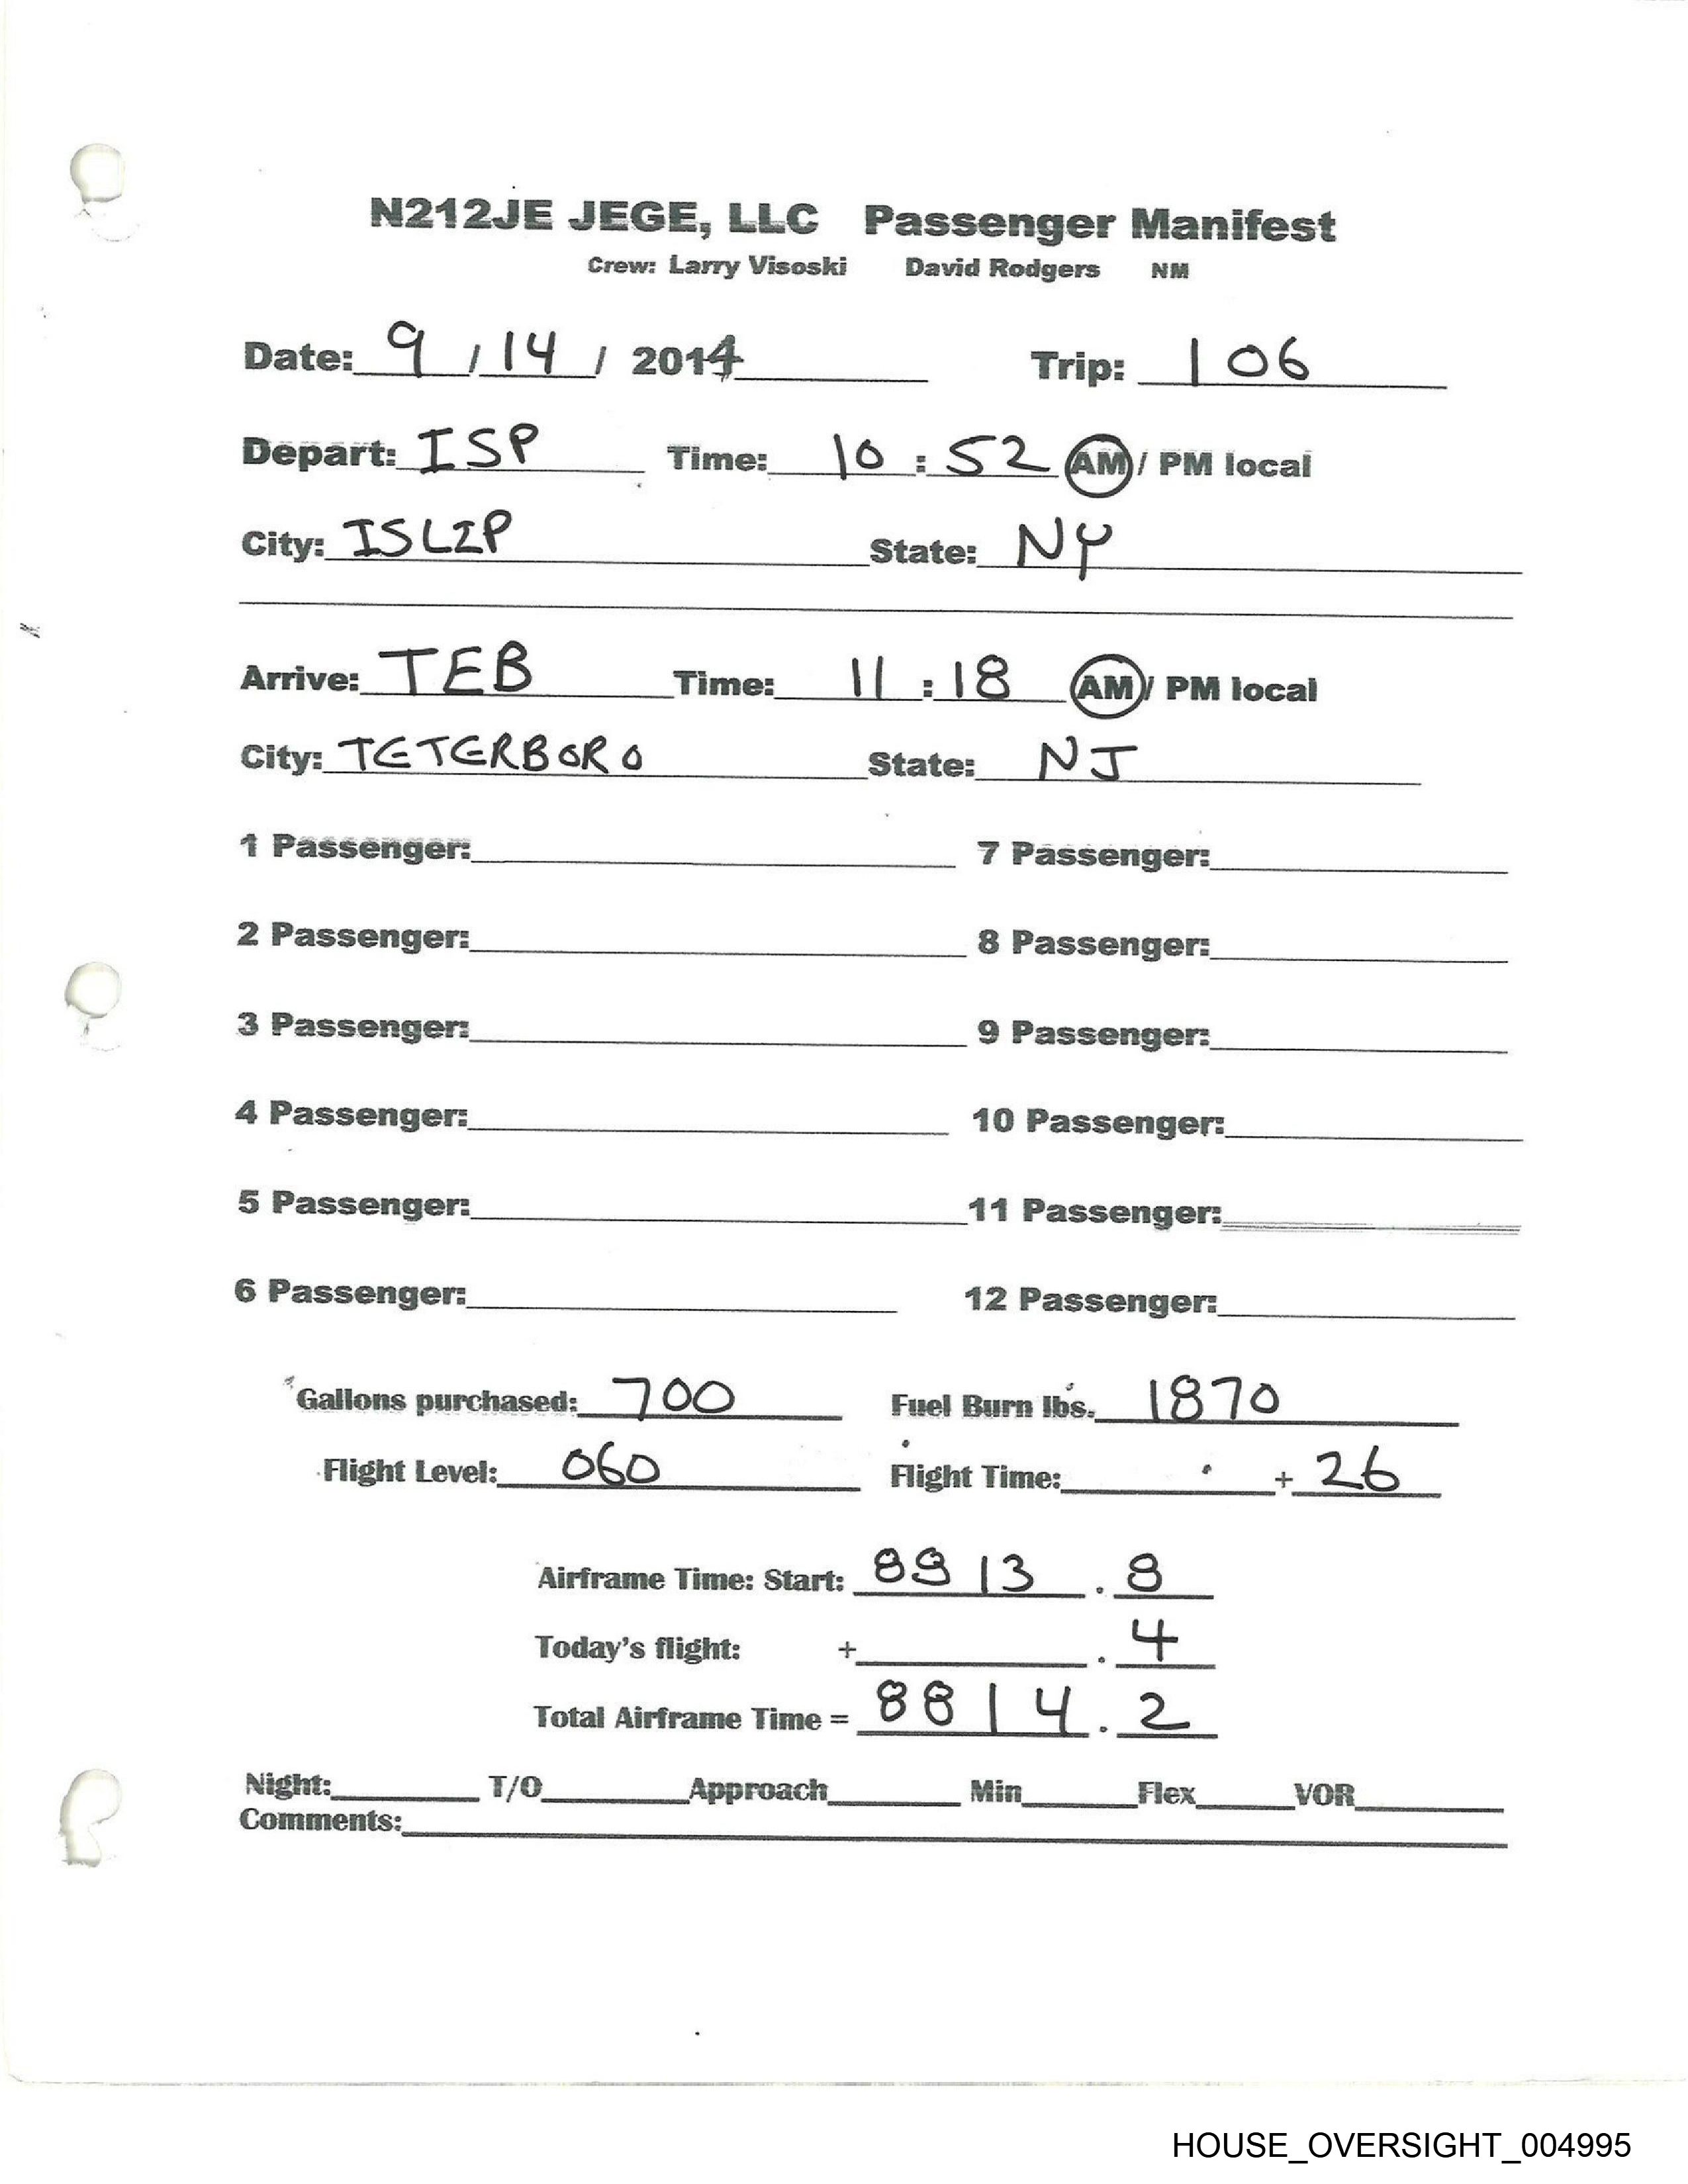 N212JE JEGE, LLC Passenger Manifest
Crew: Larry Visoski David Rodgers NM
Date: 9 / 14 / 2014 Trip: 106
Depart: ISP Time: 10 : 52 AM / PM local
City: ISLIP State: NY
Arrive: TEB Time: 11 : 18 AM / PM local
City: TETERBORO State: NJ
1 Passenger: 7 Passenger:
2 Passenger: 8 Passenger:
3 Passenger: 9 Passenger:
4 Passenger: 10 Passenger:
5 Passenger: 11 Passenger:
6 Passenger: 12 Passenger:
Gallons purchased: 700 Fuel Burn lbs. 1870
Flight Level: 060 Flight Time: + 26
Airframe Time: Start: 8813 . 8
Today's flight: + . 4
Total Airframe Time = 8814 . 2
Night: T/O Approach Min Flex VOR
Comments:
HOUSE_OVERSIGHT_004995